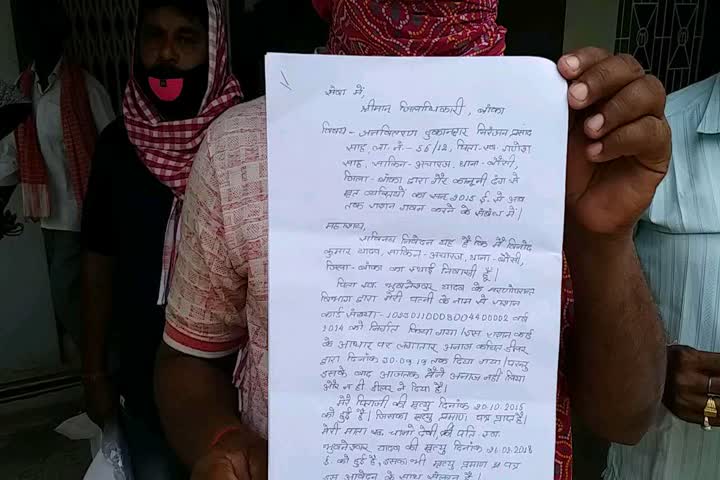 सेवा में,
श्रीमान जिलाधिकारी, बाँका
विषय- जनवितरण दुकानदार निरंजन प्रसाद
साह, ला. नं.- 55/12, पिता-स्व. गणेश
साह, साकिन- अचारज, थाना- बौंसी,
जिला- बाँका द्वारा गैर कानूनी ढंग से
मृत व्यक्तियों का सन् 2015 ई. से अब
तक राशन गबन करने के संबंध में।
महाशय,
सविनय निवेदन यह है कि मैं विनोद
कुमार यादव, साकिन- अचारज, थाना- बौंसी,
जिला- बाँका का स्थाई निवासी हूँ।
पिता स्व. भुवनेश्वर यादव के मरणोपरान्त
विभाग द्वारा मेरी पत्नी के नाम से राशन
कार्ड संख्या- वर्ष
2014 को निर्गत किया गया। इस राशन कार्ड
के आधार पर लगातार अनाज कथित डीलर
द्वारा दिनांक 30.09.19 तक दिया गया। परन्तु
इसके बाद आजतक मैंने अनाज नहीं लिया
और न ही डीलर ने दिया है।
मेरे पिताजी की मृत्यु दिनांक 20.10.2015
को हुई है। जिसका मृत्यु प्रमाण पत्र प्राप्त है।
मेरी माता स्व. चानो देवी, की पति- स्व.
भुवनेश्वर यादव की मृत्यु दिनांक 26.03.2018
ई. को हुई है, इसका भी मृत्यु प्रमाण पत्र
इस आवेदन के साथ संलग्न है।